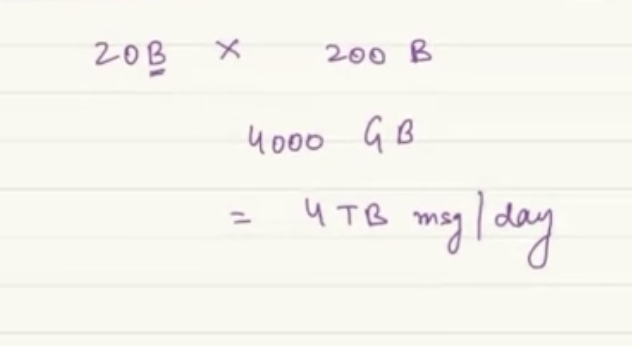 20B × 200 B
4000 GB
= 4 TB msg/day